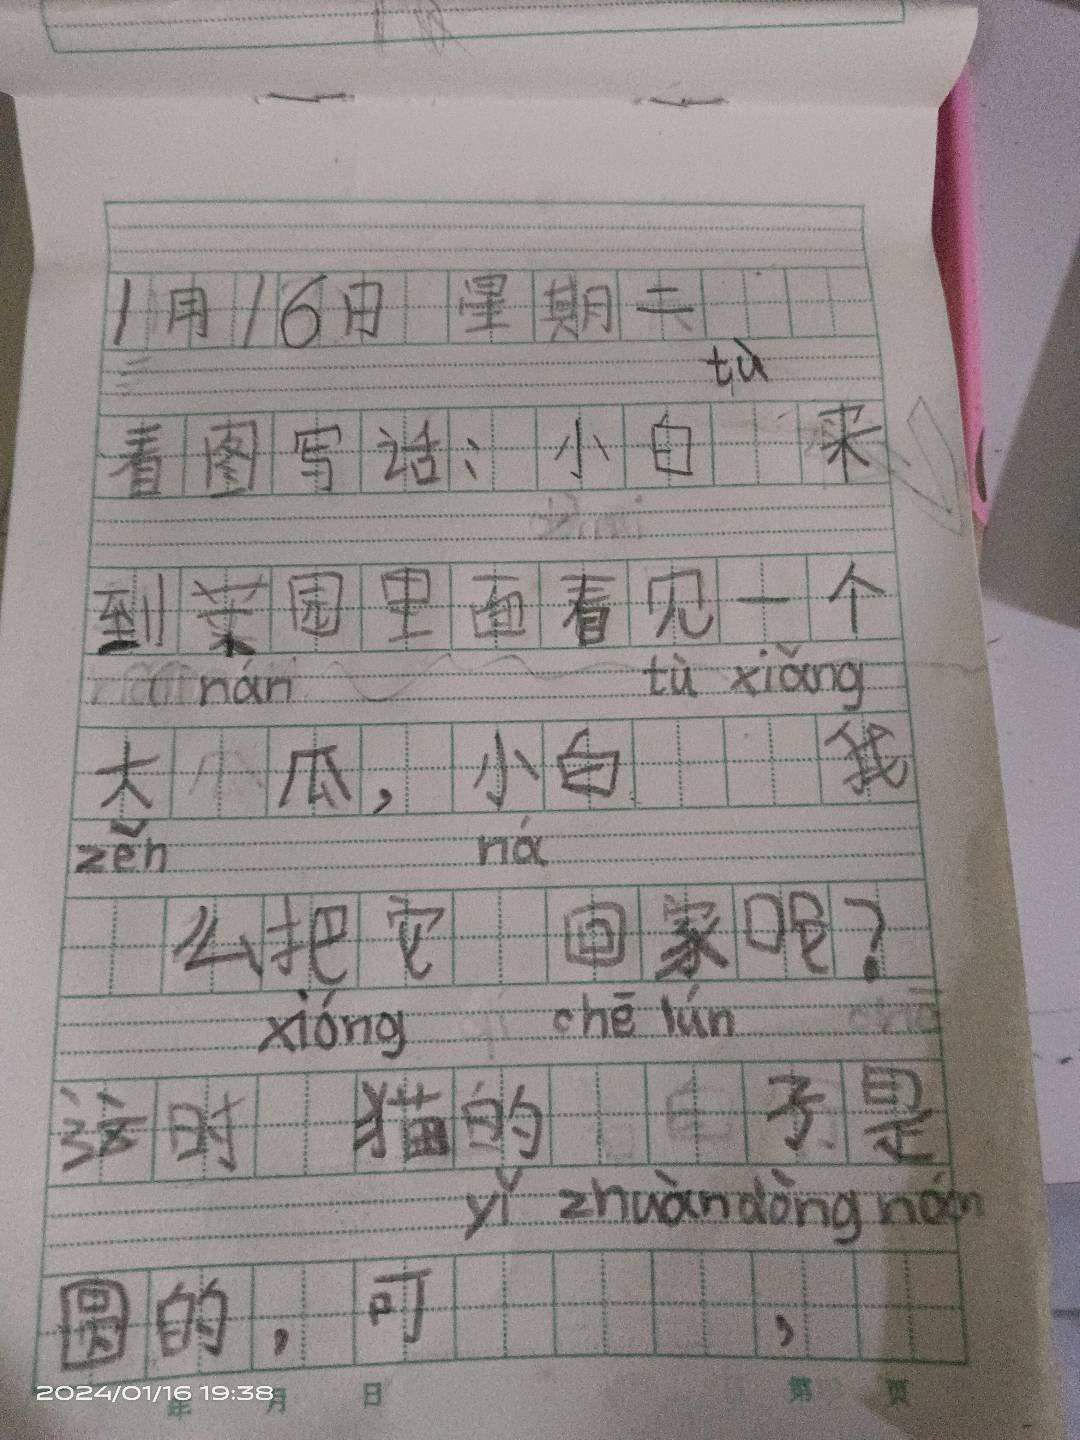 1月16日 星期二
tù
看图写话：小白 来
到菜园里面看见一个
nán tù xiǎng
大 瓜，小白 我
zěn ná
么把它 回家呢？
xióng chē lún
这时 猫的 子是
yǐ zhuàn dòng nán
圆的，可 ，
2024/01/16 19:38
年 月 日 第 页